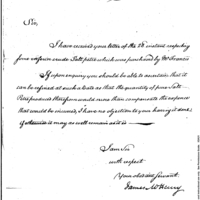 Sir,
I have received your letter of the 28 instant respecting
some rough or crude Salt petre which was purchased by Mr Francis
If upon enquiry you should be able to ascertain that it
can be refined at such a rate as that the quantity of pure Salt
Petre produced therefrom would more than compensate the expence
that would be incurred, I have no objection to your having it done
if otherwise it may as well remain as it is
I am Sir
with respect
Your obedient Servant
James McHenry